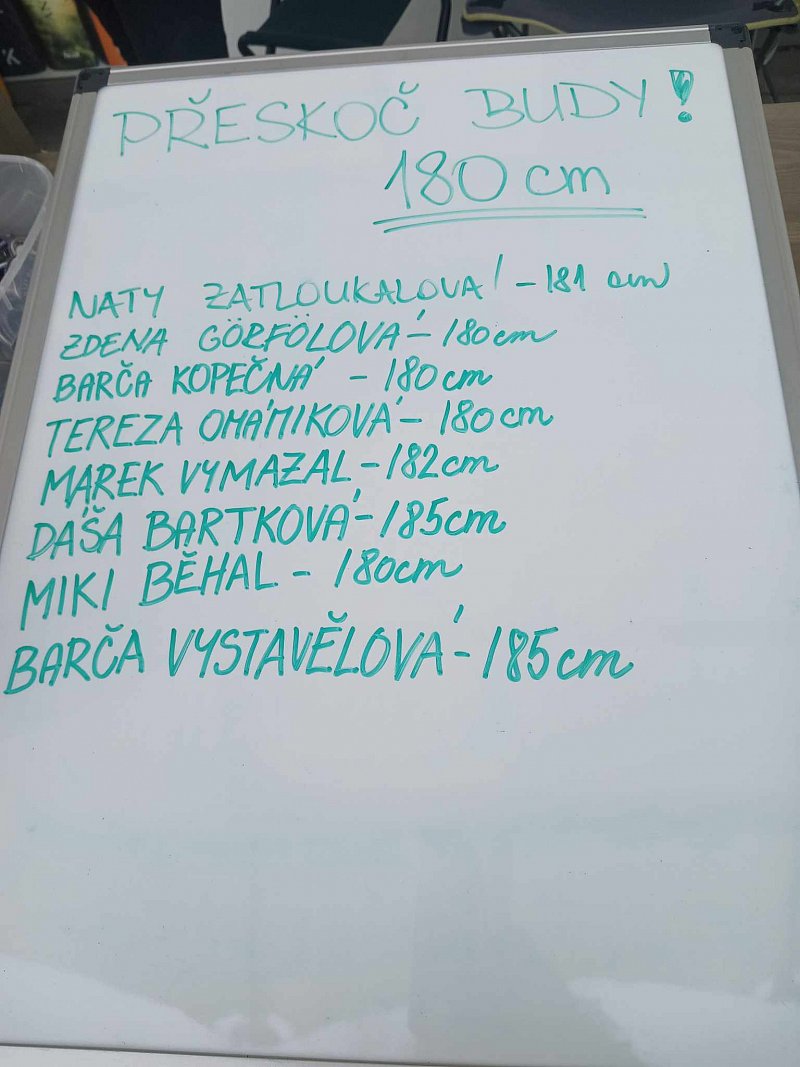 PŘESKOČ BUDY!
180 cm
NATY ZATLOUKALOVÁ - 181 cm
ZDENA GÖRFÖLOVÁ - 180cm
BARČA KOPEČNÁ - 180cm
TEREZA OMÁMIKOVÁ - 180cm
MAREK VYMAZAL - 182cm
DÁŠA BARTKOVÁ - 185cm
MIKI BĚHAL - 180cm
BARČA VYSTAVĚLOVÁ - 185cm